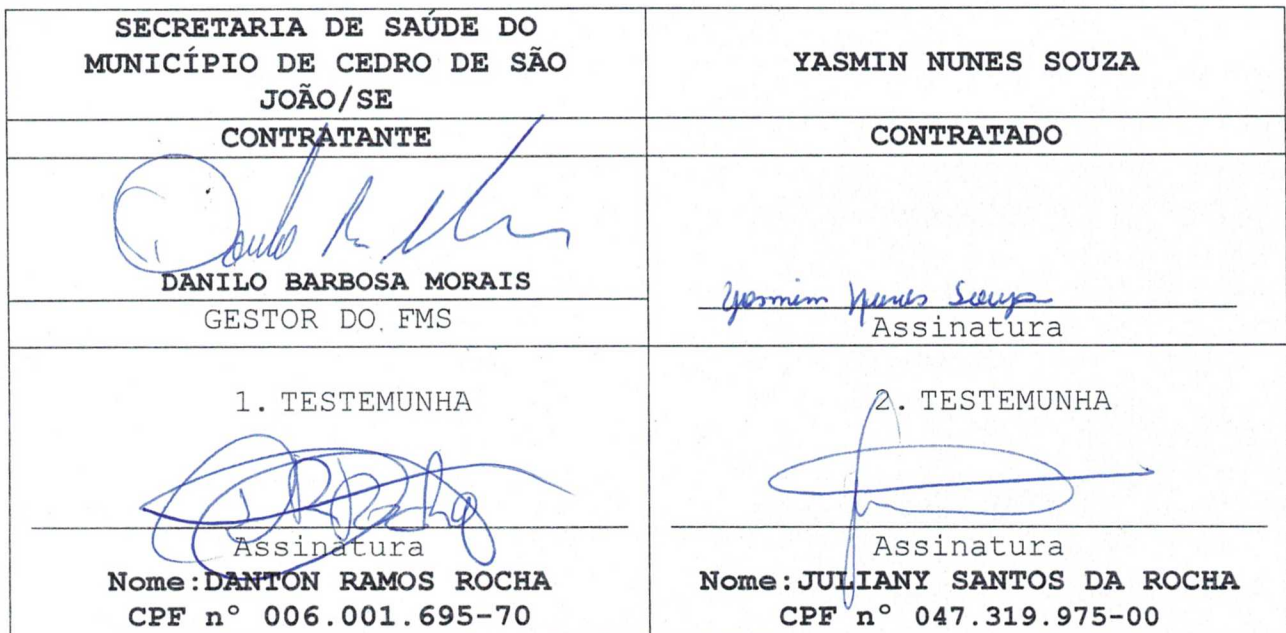 SECRETARIA DE SAÚDE DO
MUNICÍPIO DE CEDRO DE SÃO
JOÃO/SE
YASMIN NUNES SOUZA
CONTRATANTE
CONTRATADO
DANILO BARBOSA MORAIS
GESTOR DO FMS
Yasmim Nunes Souza
Assinatura
1. TESTEMUNHA
Assinatura
Nome:DANTON RAMOS ROCHA
CPF n° 006.001.695-70
2. TESTEMUNHA
Assinatura
Nome:JULIANY SANTOS DA ROCHA
CPF n° 047.319.975-00